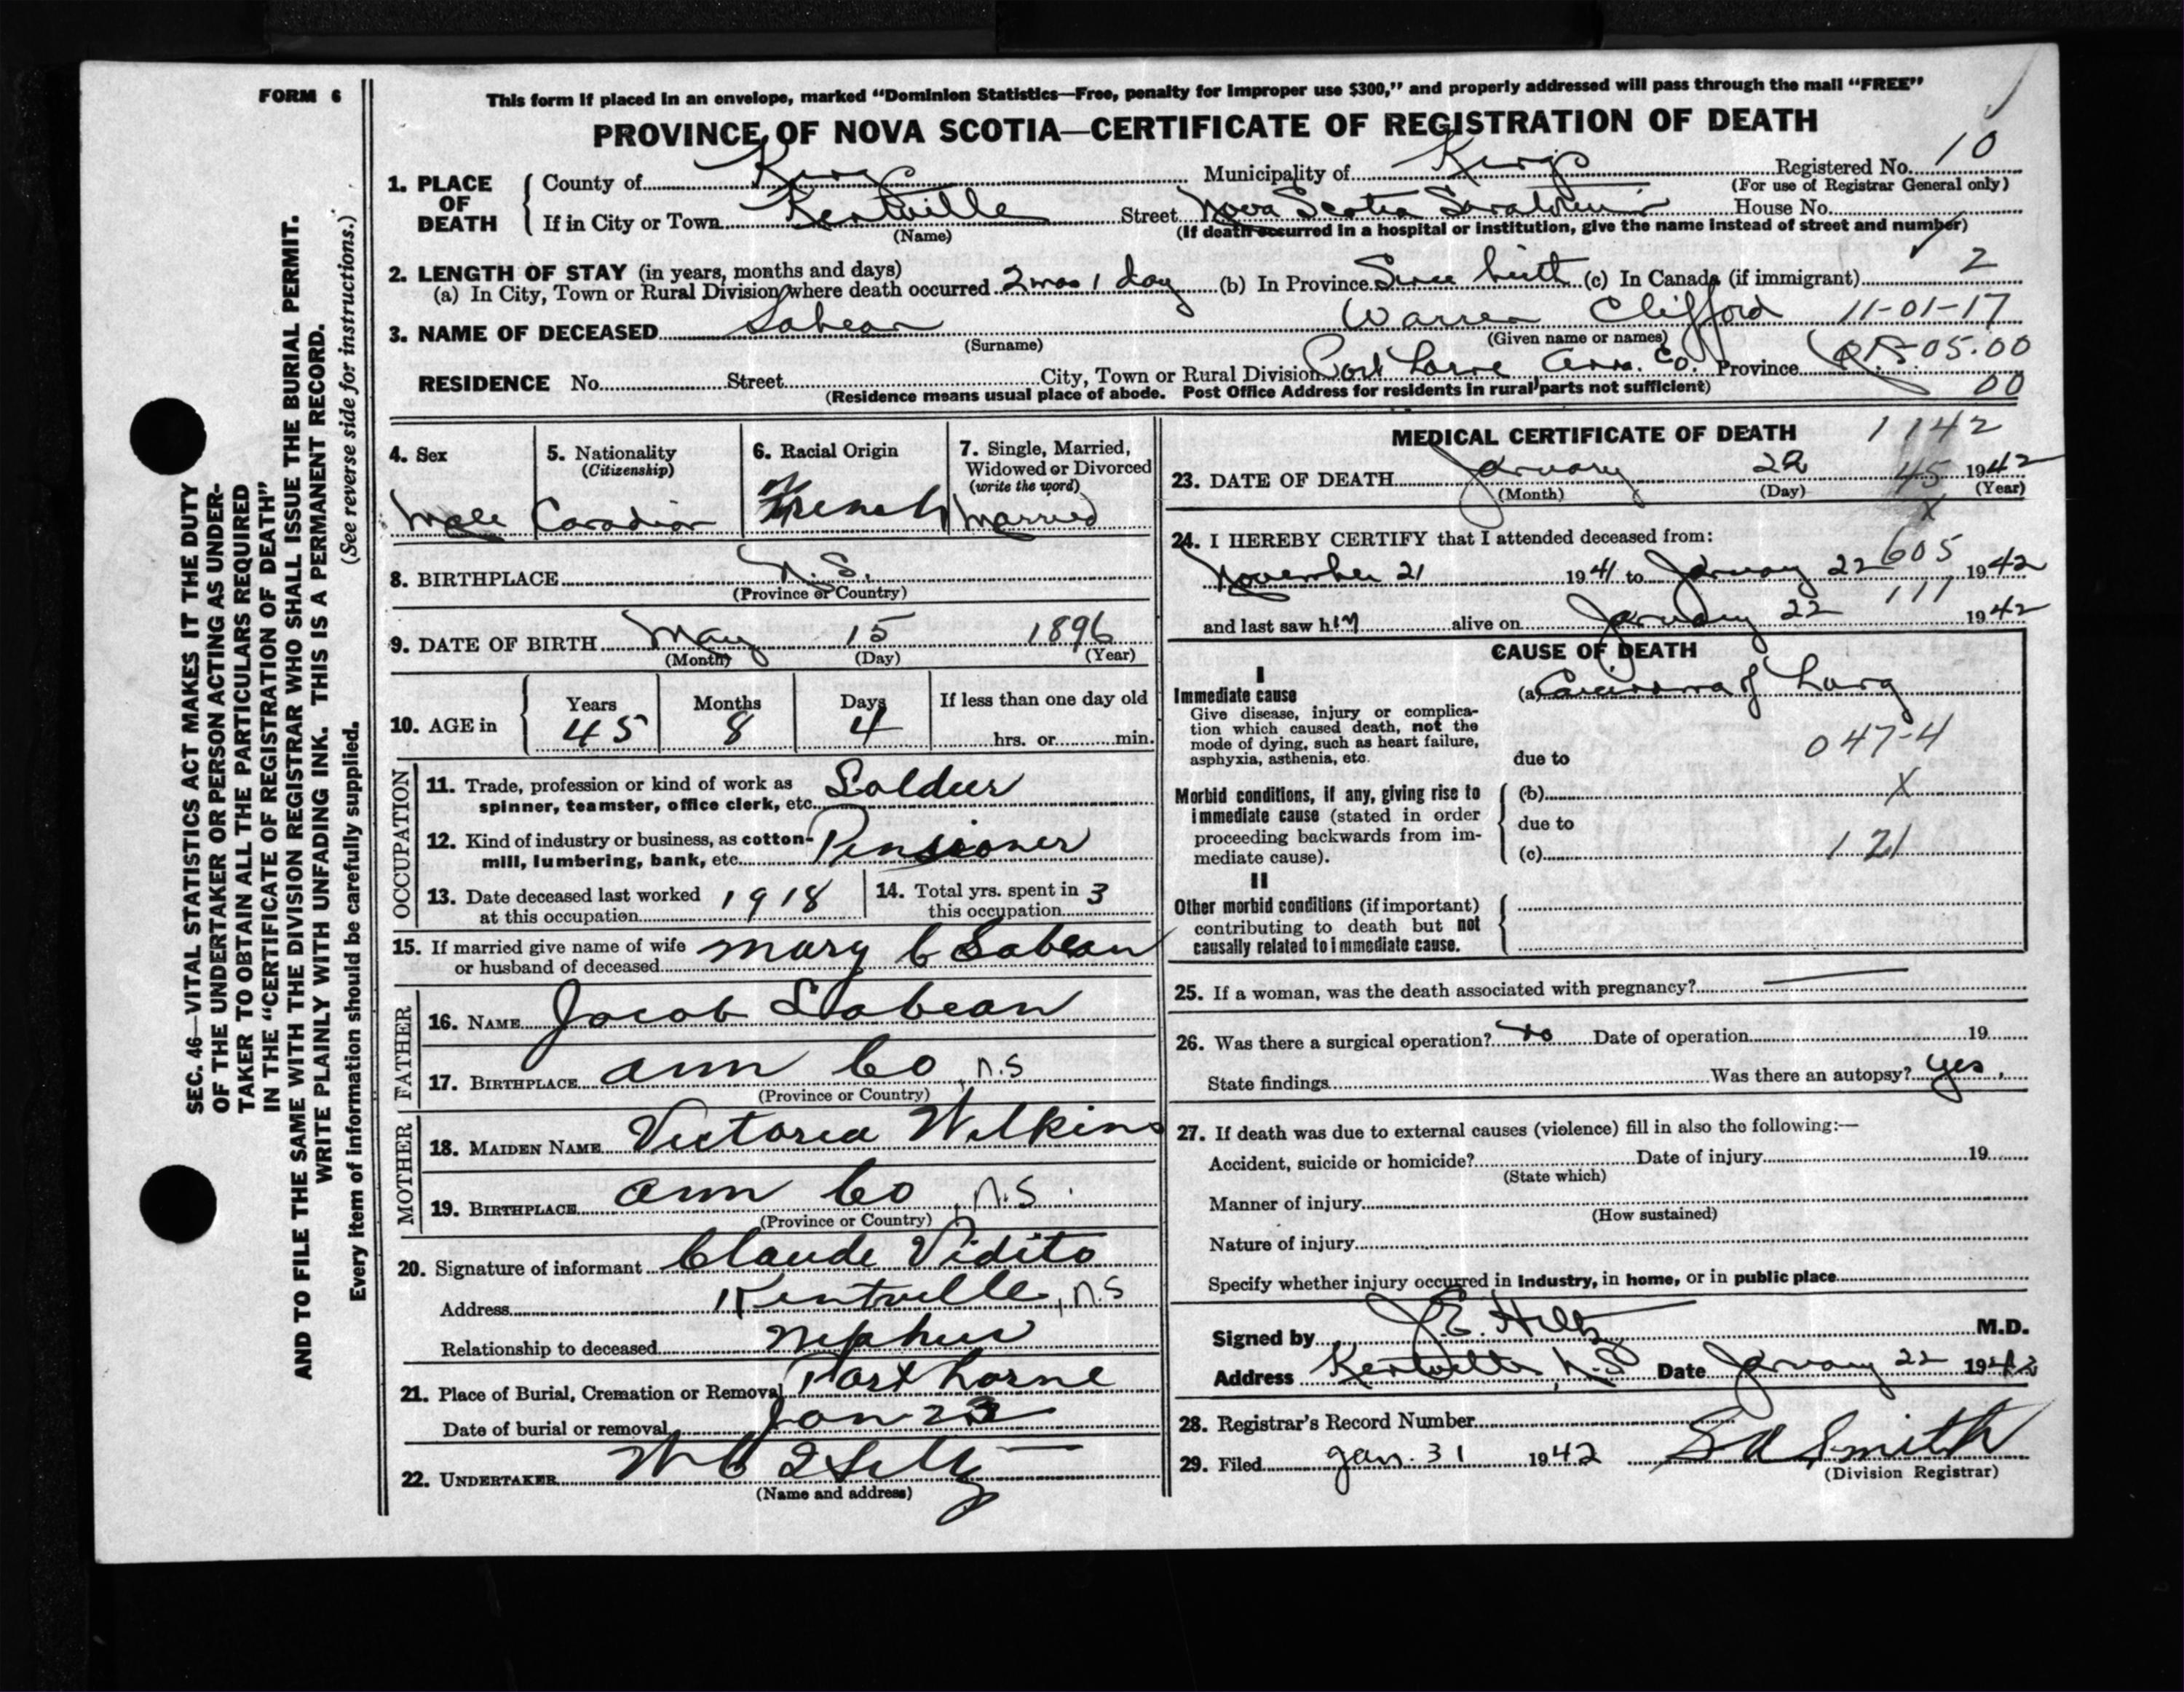 FORM 6
This form if placed in an envelope, marked "Dominion Statistics—Free, penalty for improper use $300," and properly addressed will pass through the mail "FREE"
PROVINCE OF NOVA SCOTIA—CERTIFICATE OF REGISTRATION OF DEATH
1. PLACE OF DEATH
County of Kings Municipality of Kings Registered No. 10
(For use of Registrar General only)
If in City or Town Kentville Street Nova Scotia Sanatorium House No.
(Name) (If death occurred in a hospital or institution, give the name instead of street and number)
2. LENGTH OF STAY (in years, months and days) 2
(a) In City, Town or Rural Division where death occurred 2 mos 1 day (b) In Province Since birth (c) In Canada (if immigrant)
3. NAME OF DECEASED Sabean Warren Clifford 11-01-17
(Surname) (Given name or names)
RESIDENCE No. Street City, Town or Rural Division Port Lorne Ann. Co. Province 05.00
00
(Residence means usual place of abode. Post Office Address for residents in rural parts not sufficient)
4. Sex
Male
5. Nationality
(Citizenship)
Canadian
6. Racial Origin
French
7. Single, Married,
Widowed or Divorced
(write the word)
Married
8. BIRTHPLACE N.S.
(Province or Country)
9. DATE OF BIRTH May 15 1896
(Month) (Day) (Year)
10. AGE in
Years Months Days If less than one day old
45 8 4 hrs. or min.
OCCUPATION
11. Trade, profession or kind of work as
spinner, teamster, office clerk, etc. Soldier
12. Kind of industry or business, as cotton-
mill, lumbering, bank, etc. Pensioner
13. Date deceased last worked
at this occupation 1918
14. Total yrs. spent in
this occupation 3
15. If married give name of wife
or husband of deceased Mary C Sabean
FATHER
16. NAME Jacob Sabean
17. BIRTHPLACE Ann Co, N.S
(Province or Country)
MOTHER
18. MAIDEN NAME Victoria Wilkins
19. BIRTHPLACE Ann Co, N.S.
(Province or Country)
20. Signature of informant Claude Vidito
Address Kentville, N.S
Relationship to deceased Nephew
21. Place of Burial, Cremation or Removal Port Lorne
Date of burial or removal Jan 23
22. UNDERTAKER
(Name and address)
MEDICAL CERTIFICATE OF DEATH 1142
23. DATE OF DEATH January 22 45 1942
(Month) (Day) (Year)
X
24. I HEREBY CERTIFY that I attended deceased from:
605
November 21 1941 to January 22 1942
111
and last saw him alive on January 22 1942
CAUSE OF DEATH
I
Immediate cause
Give disease, injury or complica-
tion which caused death, not the
mode of dying, such as heart failure,
asphyxia, asthenia, etc.
(a) Carcinoma of Lung
047-4
due to
Morbid conditions, if any, giving rise to
immediate cause (stated in order
proceeding backwards from im-
mediate cause).
(b) X
due to
(c) 121
II
Other morbid conditions (if important)
contributing to death but not
causally related to immediate cause.
25. If a woman, was the death associated with pregnancy? —
26. Was there a surgical operation? No Date of operation 19
State findings Was there an autopsy? Yes.
27. If death was due to external causes (violence) fill in also the following:—
Accident, suicide or homicide? Date of injury 19
(State which)
Manner of injury
(How sustained)
Nature of injury
Specify whether injury occurred in industry, in home, or in public place
Signed by J.E. Hiltz M.D.
Address Kentville, N.S Date January 22 1942
28. Registrar's Record Number
29. Filed Jan. 31 1942 Smith
(Division Registrar)
SEC. 46—VITAL STATISTICS ACT MAKES IT THE DUTY
OF THE UNDERTAKER OR PERSON ACTING AS UNDER-
TAKER TO OBTAIN ALL THE PARTICULARS REQUIRED
IN THE "CERTIFICATE OF REGISTRATION OF DEATH"
AND TO FILE THE SAME WITH THE DIVISION REGISTRAR WHO SHALL ISSUE THE BURIAL PERMIT.
WRITE PLAINLY WITH UNFADING INK. THIS IS A PERMANENT RECORD.
Every item of information should be carefully supplied. (See reverse side for instructions.)